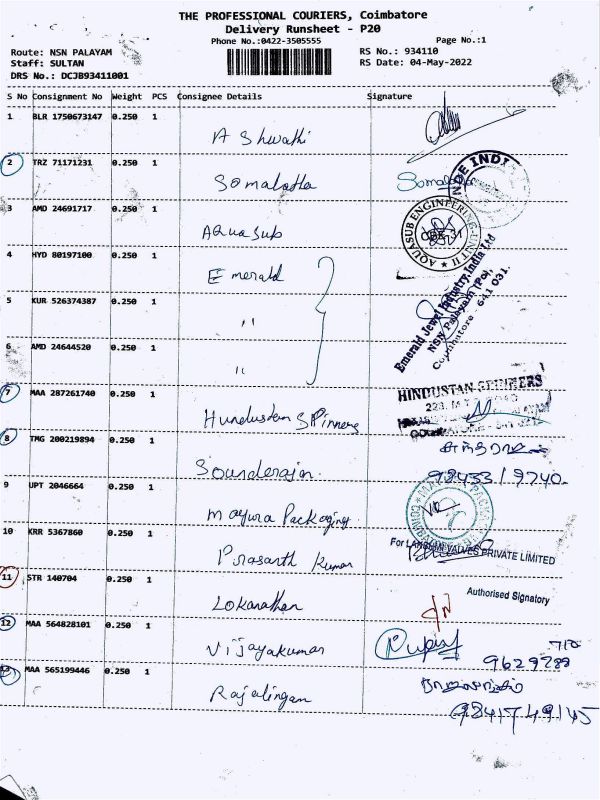 THE PROFESSIONAL COURIERS, Coimbatore
Delivery Runsheet - P20
Phone No.:0422-3505555 Page No.:1
Route: NSN PALAYAM RS No.: 934110
Staff: SULTAN RS Date: 04-May-2022
DRS No.: DCJB93411001
S No Consignment No Weight PCS Consignee Details Signature
1 BLR 1750673147 0.250 1 Ashwathi
2 TRZ 71171231 0.250 1 Somalatha
3 AMD 24691717 0.250 1 Aquasub AQUASUB ENGINEERING-UNIT II
4 HYD 80197100 0.250 1 Emerald
5 KUR 526374387 0.250 1 "
6 AMD 24644520 0.250 1 "
Emerald Jewel Industry India Ltd
NSN Palayam (Po),
Coimbatore - 641 031.
7 MAA 287261740 0.250 1 Hundustan SPinners
HINDUSTAN SPINNERS
8 TMG 200219894 0.250 1 Sounderajan
9 UPT 2046664 0.250 1 Mayura Packaging
10 KRR 5367860 0.250 1 Prasanth Kumar
For LANSUM VALVES PRIVATE LIMITED
Authorised Signatory
11 STR 140704 0.250 1 Lokanathan
12 MAA 564828101 0.250 1 Vijayakumar
13 MAA 565199446 1 Rajalingan
9841749145